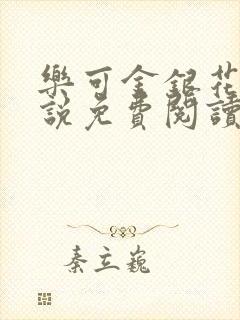 樂可金銀花
說免費閱讀
秦立巍